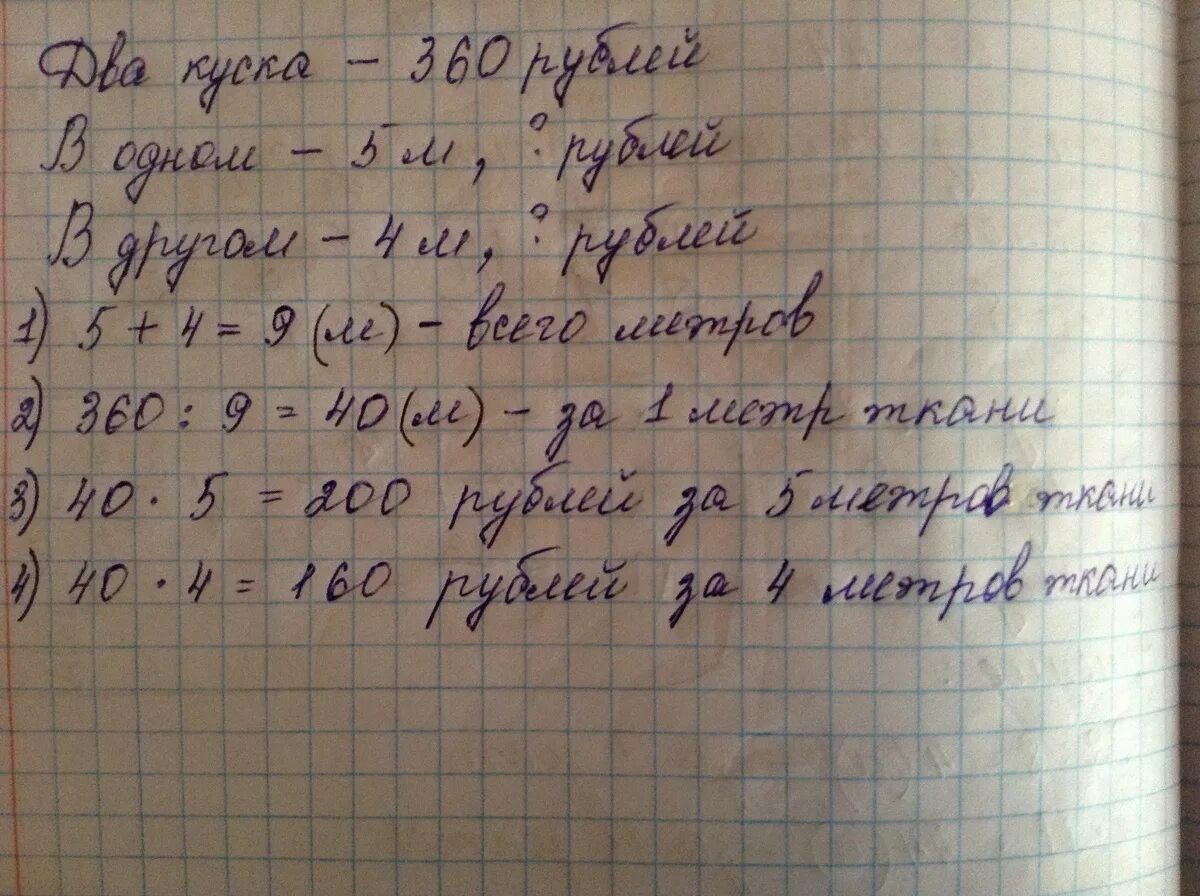 Два куска – 360 рублей
В одном – 5 м, ? рублей
В другом – 4 м, ? рублей
1) 5 + 4 = 9 (м) – всего метров
2) 360 : 9 = 40 (м) – за 1 метр ткани
3) 40 · 5 = 200 рублей за 5 метров ткани
4) 40 · 4 = 160 рублей за 4 метров ткани